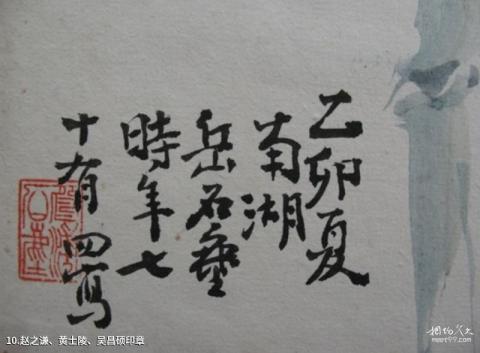 乙卯夏
南湖
岳石尘
時年七
十有四寫
10.赵之谦、黄士陵、吴昌硕印章
meet99.com